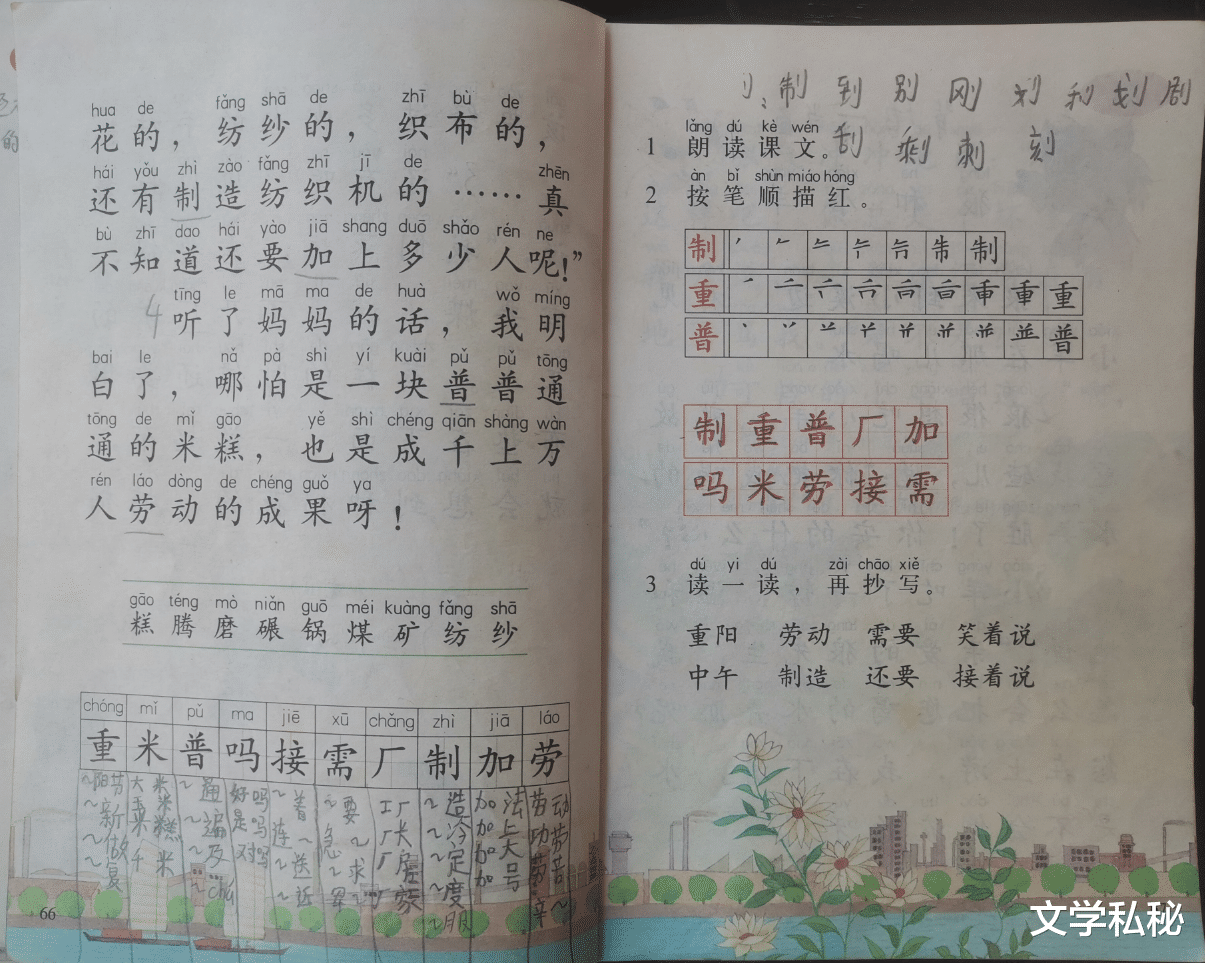 hua de fǎng shā de zhī bù de
花的，纺纱的，织布的，
hái yǒu zhì zào fǎng zhī jī de zhēn
还有制造纺织机的……真
bù zhī dao hái yào jiā shang duō shǎo rén ne
不知道还要加上多少人呢！”
tīng le mā ma de huà wǒ míng
4 听了妈妈的话，我明
bai le nǎ pà shì yí kuài pǔ pǔ tōng
白了，哪怕是一块普普通
tōng de mǐ gāo yě shì chéng qiān shàng wàn
通的米糕，也是成千上万
rén láo dòng de chéng guǒ ya
人劳动的成果呀！
gāo téng mò niǎn guō méi kuàng fǎng shā
糕 腾 磨 碾 锅 煤 矿 纺 纱
chóng mǐ pǔ ma jiē xū chǎng zhì jiā láo
重 米 普 吗 接 需 厂 制 加 劳
66
制 到 别 刚 利 划 剧
lǎng dú kè wén
1 朗读课文。刮 剩 刺 刻
àn bǐ shùn miáo hóng
2 按笔顺描红。
制
重
普
制 重 普 厂 加
吗 米 劳 接 需
dú yi dú zài chāo xiě
3 读一读，再抄写。
重阳 劳动 需要 笑着说
中午 制造 还要 接着说
文学私秘